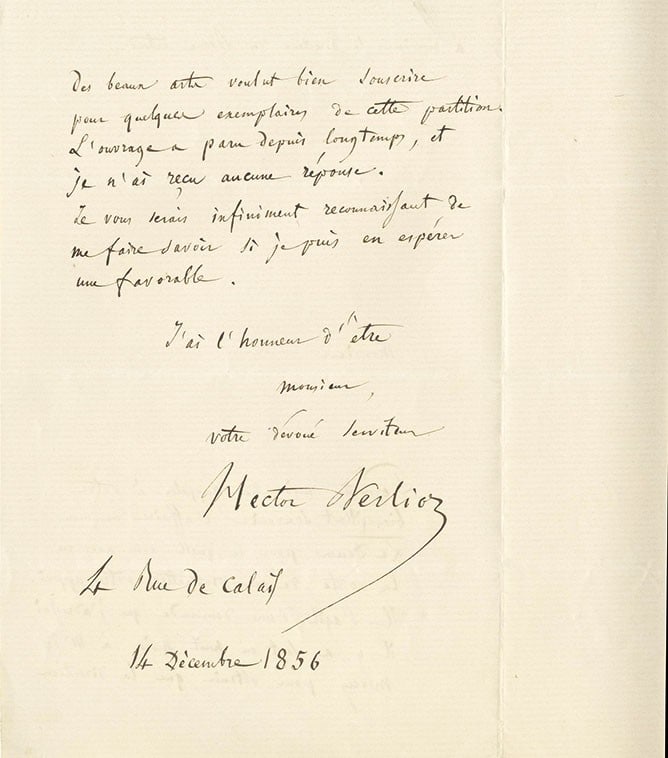 Des beaux arts voulut bien souscrire
pour quelques exemplaires de cette partition.
L'ouvrage a paru depuis longtemps, et
je n'ai reçu aucune réponse.
Je vous serais infiniment reconnaissant de
me faire savoir si je puis en espérer
une favorable.
J'ai l'honneur d'être
monsieur,
votre dévoué serviteur
Hector Berlioz
4 Rue de Calais
14 Décembre 1856